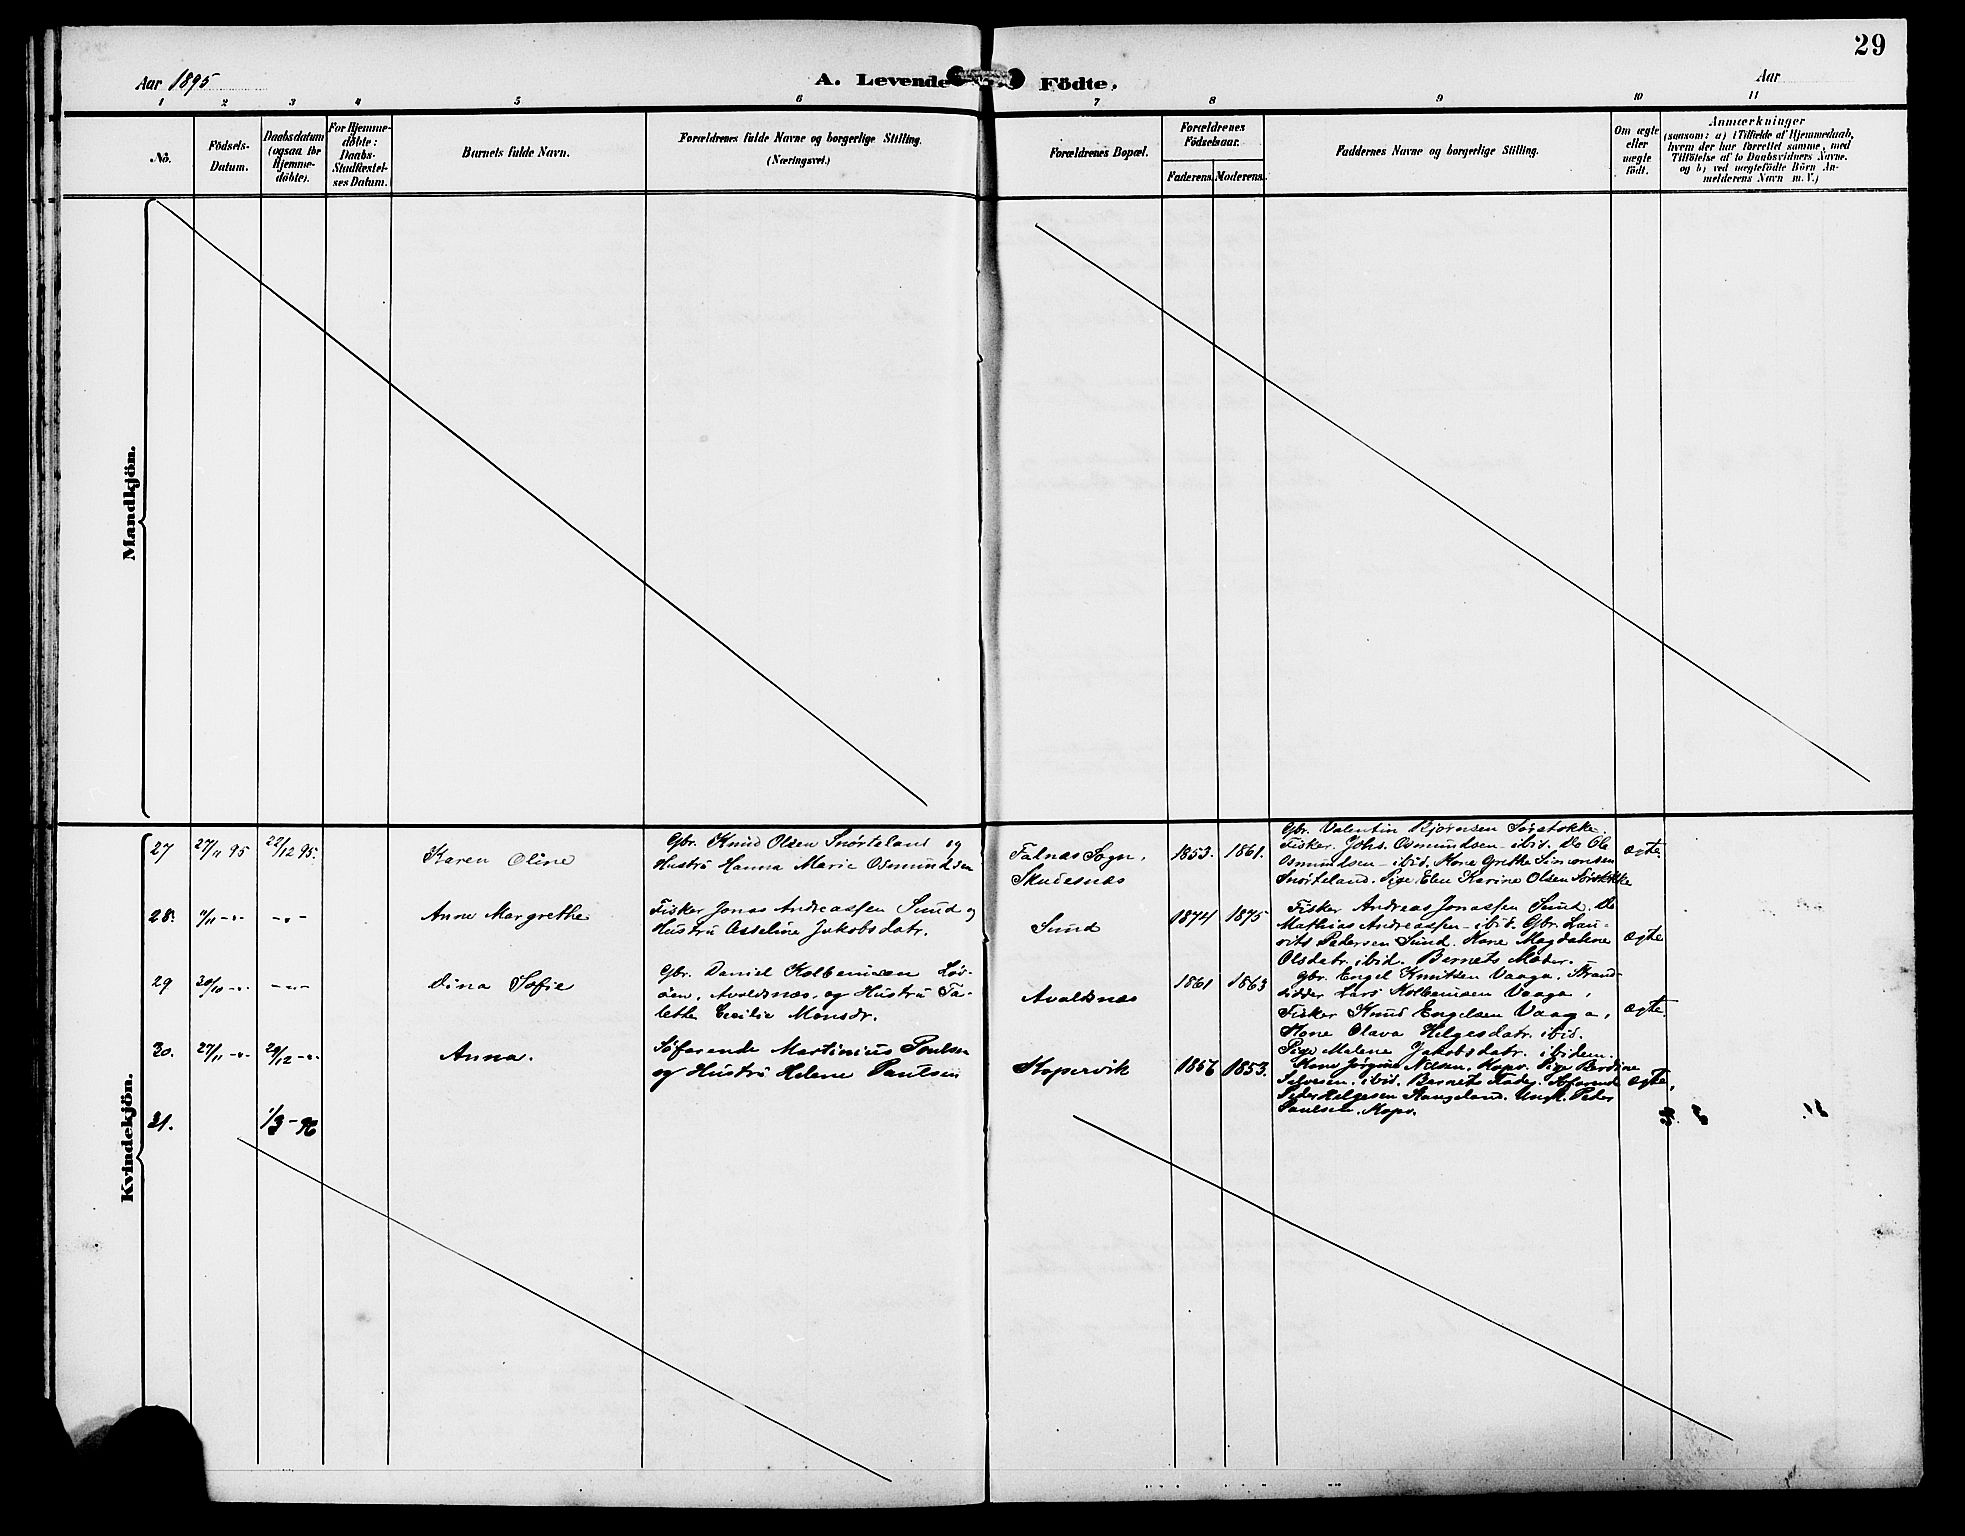 29
Aar 1895
A. Levende Födte.
Aar
1 2 3 4 5 6 7 8 9 10 11
No.
Födsels-Datum.
Daabsdatum (ogsaa for Hjemme-döbte).
For Hjemme-döbte: Daabs-Stadfæstel-ses Datum.
Barnets fulde Navn.
Forældrenes fulde Navne og borgerlige Stilling.
(Næringsvei.)
Forældrenes Bopæl.
Forældrenes Födselsaar.
Faderens. Moderens.
Faddernes Navne og borgerlige Stilling.
Om ægte eller uægte födt.
Anmærkninger
(saasom: a) i Tilfælde af Hjemmedaab,
hvem der har forrettet samme, med
Tilföielse af to Daabsvidners Navne.
og b) ved uægtefödte Börn An-
melderens Navn m. V.)
Mandkjön.
Kvindekjön.
27 27/11 95 22/12 95.
Karen Oline
Gbr. Knud Olsen Snørteland og
Hustru Hanna Marie Osmundsen
Falnæs Sogn,
Skudesnæs
1853. 1861.
Gbr. Valentin Bjørnsen Sørstokke.
Fisker Johs. Osmundsen - ibid. Do Ole
Osmundsen - ibid. Kone Grethe Simonsen
Snørteland. Pige Elen Karine Olsen Sørstokke
ægte.
28. 7/11 -"- -"-
Anne Margrethe
Fisker Jonas Andreassen Sund og
Hustru Asseline Jakobsdatr.
Sund
1874 1875
Fisker Andreas Jonassen Sund. Do
Mathias Andreassen - ibid. Gbr. Lau-
rits Pedersen Sund. Kone Magdalene
Olsdatr. ibid. Barnets Moder.
ægte
29 20/10 -"- -"-
Dina Sofie
Gbr. Daniel Kolbeinsen Løv-
øen, Avaldsnæs, og Hustru Ta-
lette Cecilie Monsdr.
Avaldsnæs
1861 1863
Gbr. Engel Knutsen Vaaga. Strand-
sidder Lars Kolbeinsen Vaaga,
Fisker Knud Engelsen Vaaga,
Kone Olava Helgesdatr. ibid.
Pige Malene Jakobsdatr. ibidem.
ægte.
30. 27/11 -"- 29/12 -"-
Anna.
Søfarende Martinius Poulsen
og Hustru Helene Paulsen
Kopervik
1856 1853.
Kone Jørgine Nilsen. Kopv. Pige Berdine
Salvesen. ibid. Barnets Fader. Søfarende
Peder Helgesen Stangeland. Ungk. Peder
Paulsen. Kopv.
ægte,
31. 1/3-96